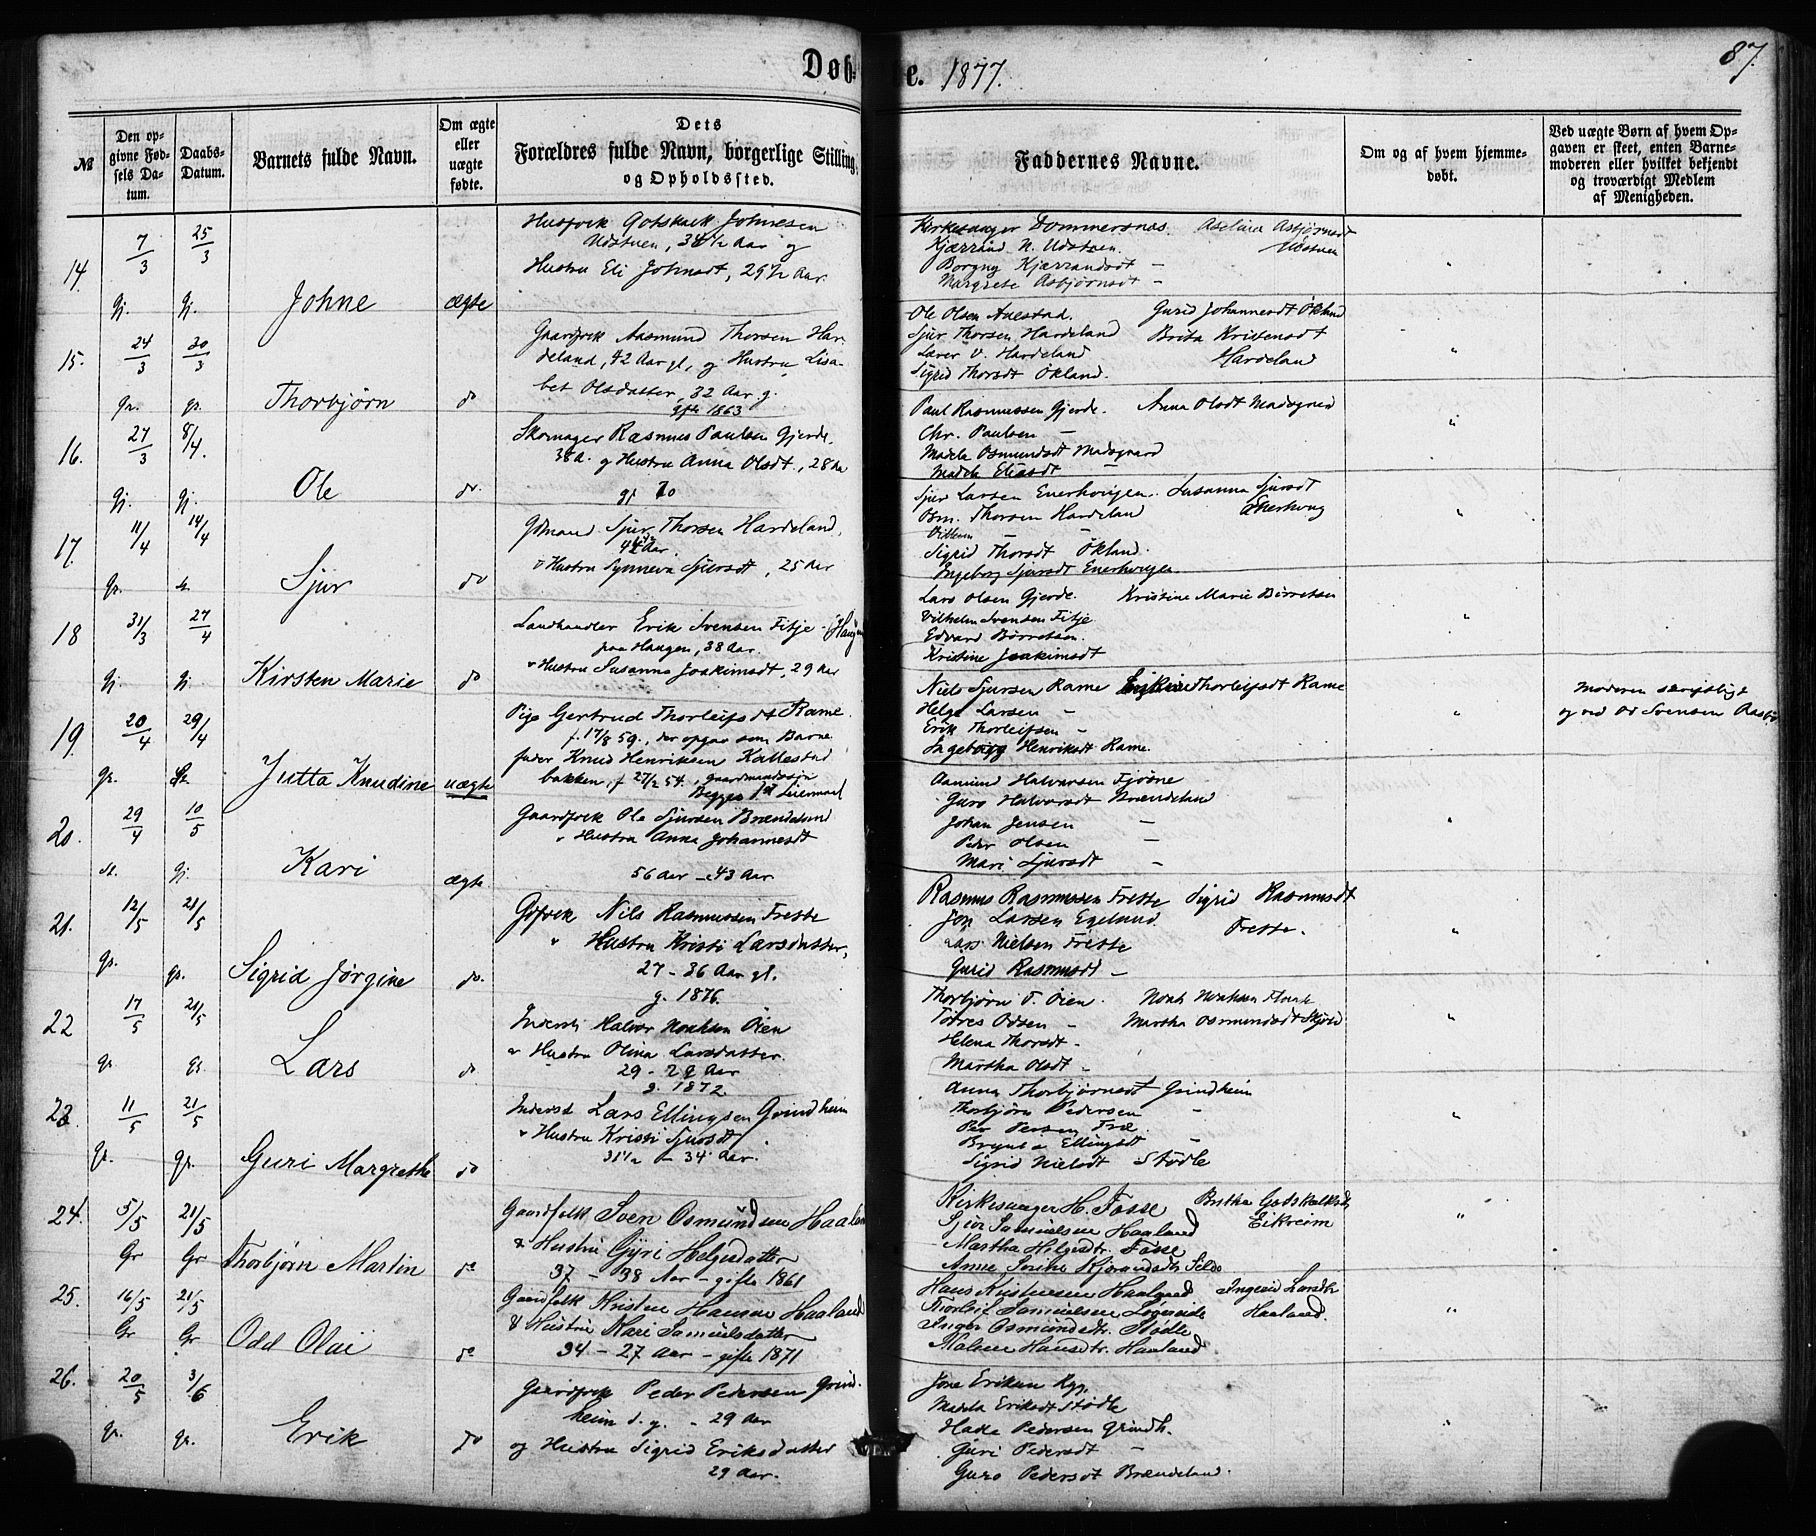 Døb-
e. 1877.
87.
№
Den op-
givne Fød-
sels Da-
tum.
Daabs-
Datum.
Barnets fulde Navn.
Om ægte
eller
uægte
fødte.
Dets
Forældres fulde Navn, borgerlige Stilling,
og Opholdssted.
Faddernes Navne.
Om og af hvem hjemme-
døbt.
Ved uægte Børn af hvem Op-
gaven er skeet, enten Barne-
moderen eller hvilket bekjendt
og troværdigt Medlem
af Menigheden.
14.
7/3
25/3
gj. gj.
Johne
ægte
Husfolk Gotskalk Johnesen
Udstuen, 34 1/2 Aar og
Hustru Eli Johnsdt, 29 1/2 Aar.
Kirkesanger Dommersnæs. Aselina Asbjørnsdt
Kjærrand N. Udstuen. Udstuen
Borgny Kjærrandsdt -
Margrete Asbjørnsdt -
"
15.
24/3
30/3
gr. gr.
Thorbjørn
do
Gaardfolk Aasmund Thorsen Har
deland, 42 Aar gl, og Hustru Lisa-
bet Olsdatter, 32 Aar g.
gifte 1863
Ole Olsen Aalstad. Gurid Johannesdt Økland
Sjur Thorsen Hardeland Brita Kristensdt
Larer V. Hardeland Hardeland
Sigrid Thorsdt Økland.
"
16.
27/3
8/4.
gj. gj.
Ole
do.
Skomager Rasmus Paulsen Gjerde,
38 A. og Hustru Anna Olsdt, 28 Aar
gf 70
Paul Rasmussen Gjerde. Anna Olsdt Madsgaard
Chr. Paulsen -
Madela Osmundsdt Madsgaard
Madela Eliasdt -
"
17.
11/4
14/4
gr.
Sjur
do
Gdmand Sjur Thorsen Hardeland,
44 Aar.
& Hustru Synneva Sjursdt, 25 Aar
Sjur Larsen Enerhougen. Susanna Sjursdt
Osm. Thorsen Hardeland Enerhoug
Sigrid Thorsdt Økland.
Ingeborg Sjursdt Enerhougen
"
18
31/3
27/4
gj. gj.
Kirsten Marie
do
Landhandler Erik Svensen Fitje
paa Haugen, 38 Aar.
& Hustru Susanna Joakimsdt, 29 Aar
Lars Olsen Gjerde. Kristine Marie Børretsen
Vilhelm Svensen Fitje
Edvard Børretsen.
Kristine Joakimsdt
"
19.
20/4
29/4
gr.
Jutta Knudine
uægte
Pige Gertrud Thorleifsdt Rame.
f. 17/8 59., der opgav som Barne
fader Knud Henriksen Kallestad
bakken, f 27/2 54, gaardmandssøn
Begges 1st Leiermaal
Niels Sjursen Rame Thorleifsdt Rame
Helge Larsen -
Erik Thorleifsen -
Ingeborg Henriksdt Rame.
"
Moderen skriftligt
og ved Svensen
20.
29/4
10/5
gj.
Kari
ægte
Gaardfolk Ole Sjursen Brændeland
& Hustru Anna Johannesdt
56 Aar - 43 Aar
Aamund Halvorsen Fjøsne
Guro Halvorsdt Brændeland
Johan Jensen -
Peder Olsen -
Mari Sjursdt -
"
21.
12/5
21/5
gr. gr.
Sigrid Jørgine
do.
Gdfolk Nils Rasmussen Frette
" Hustru Kristi Larsdatter,
27 - 36 Aar gl.
g. 1876.
Rasmus Rasmussen Frette Sigrid Rasmusdt
Jon Larsen Egeland Frette.
Lars Nielsen Frette
Gurid Rasmusdt -
"
22
17/5
21/5
gr. gr.
Lars
do
Inderst Halvor Noahsen Øien
& Hustru Olina Larsdatter.
29 - 29 Aar
g. 1872
Thorbjørn T. Øien. Noah Noahsen
Tørres Odsen - Martha Osmundsdt Skjold
Helena Thorsdt -
Martha Olsdt -
"
23.
11/5
21/5
gr. gr.
Guri Margrethe
do
Inderst Lars Ellingsen Grindheim
& Hustru Kristi Sjursdt.
31 1/2 - 34 Aar.
Anna Thorbjørnsdt Grindheim
Thorbjørn Pedersen -
Per Persen Træ.
Brynla Ellingsdt -
Sigrid Nielsdt Stødle
"
24.
5/5
21/5
Gr Gr
Thorbjørn Martin
do
Gaardfolk Sven Osmundsen Haaland
& Hustru Gyri Helgesdatter
37 - 38 Aar - gifte 1861
Kirkesanger H. Fosse Britha Godskalksdt
Sjur Samuelsen Haaland Eikreim
Martha Helgesdtr. Fosse
Anne Sirine Kjerandsdtr
"
25.
16/5
21/5
Gr Gr
Odd Olai
do
Gaardfolk Kristen Hansen Haaland
& Hustru Kari Samuelsdatter
34 - 27 Aar - gifte 1871
Hans Kristensen Haaland Ingerid Larsdtr
Thorleif Samuelsen Løgereide Haaland.
Inger Osmundsdtr. Stødle
Malene Hansdtr. Haaland.
"
26.
20/5
3/6
gr. gr.
Erik
do
Gaardfolk Peder Pedersen Grind-
heim d. y. - 29 Aar
og Hustru Sigrid Eriksdatter
29 Aar.
Jone Eriksen Ryg.
Madela Eriksdt Stødle
Hake Pedersen Grindh.
Guri Pedersdt -
Guro Pedersdt Brændeland.
"